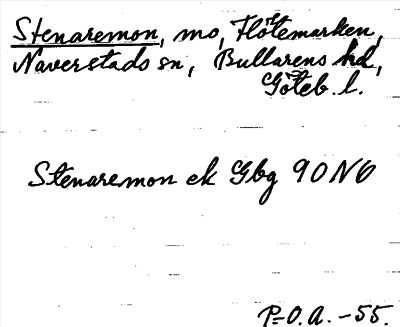 Stenaremon, mo, Flötemarken,
Naverstads sn, Bullarens hd,
Göteb. l.
Stenaremon ek Gbg 90 NO
P-O.A. -55.